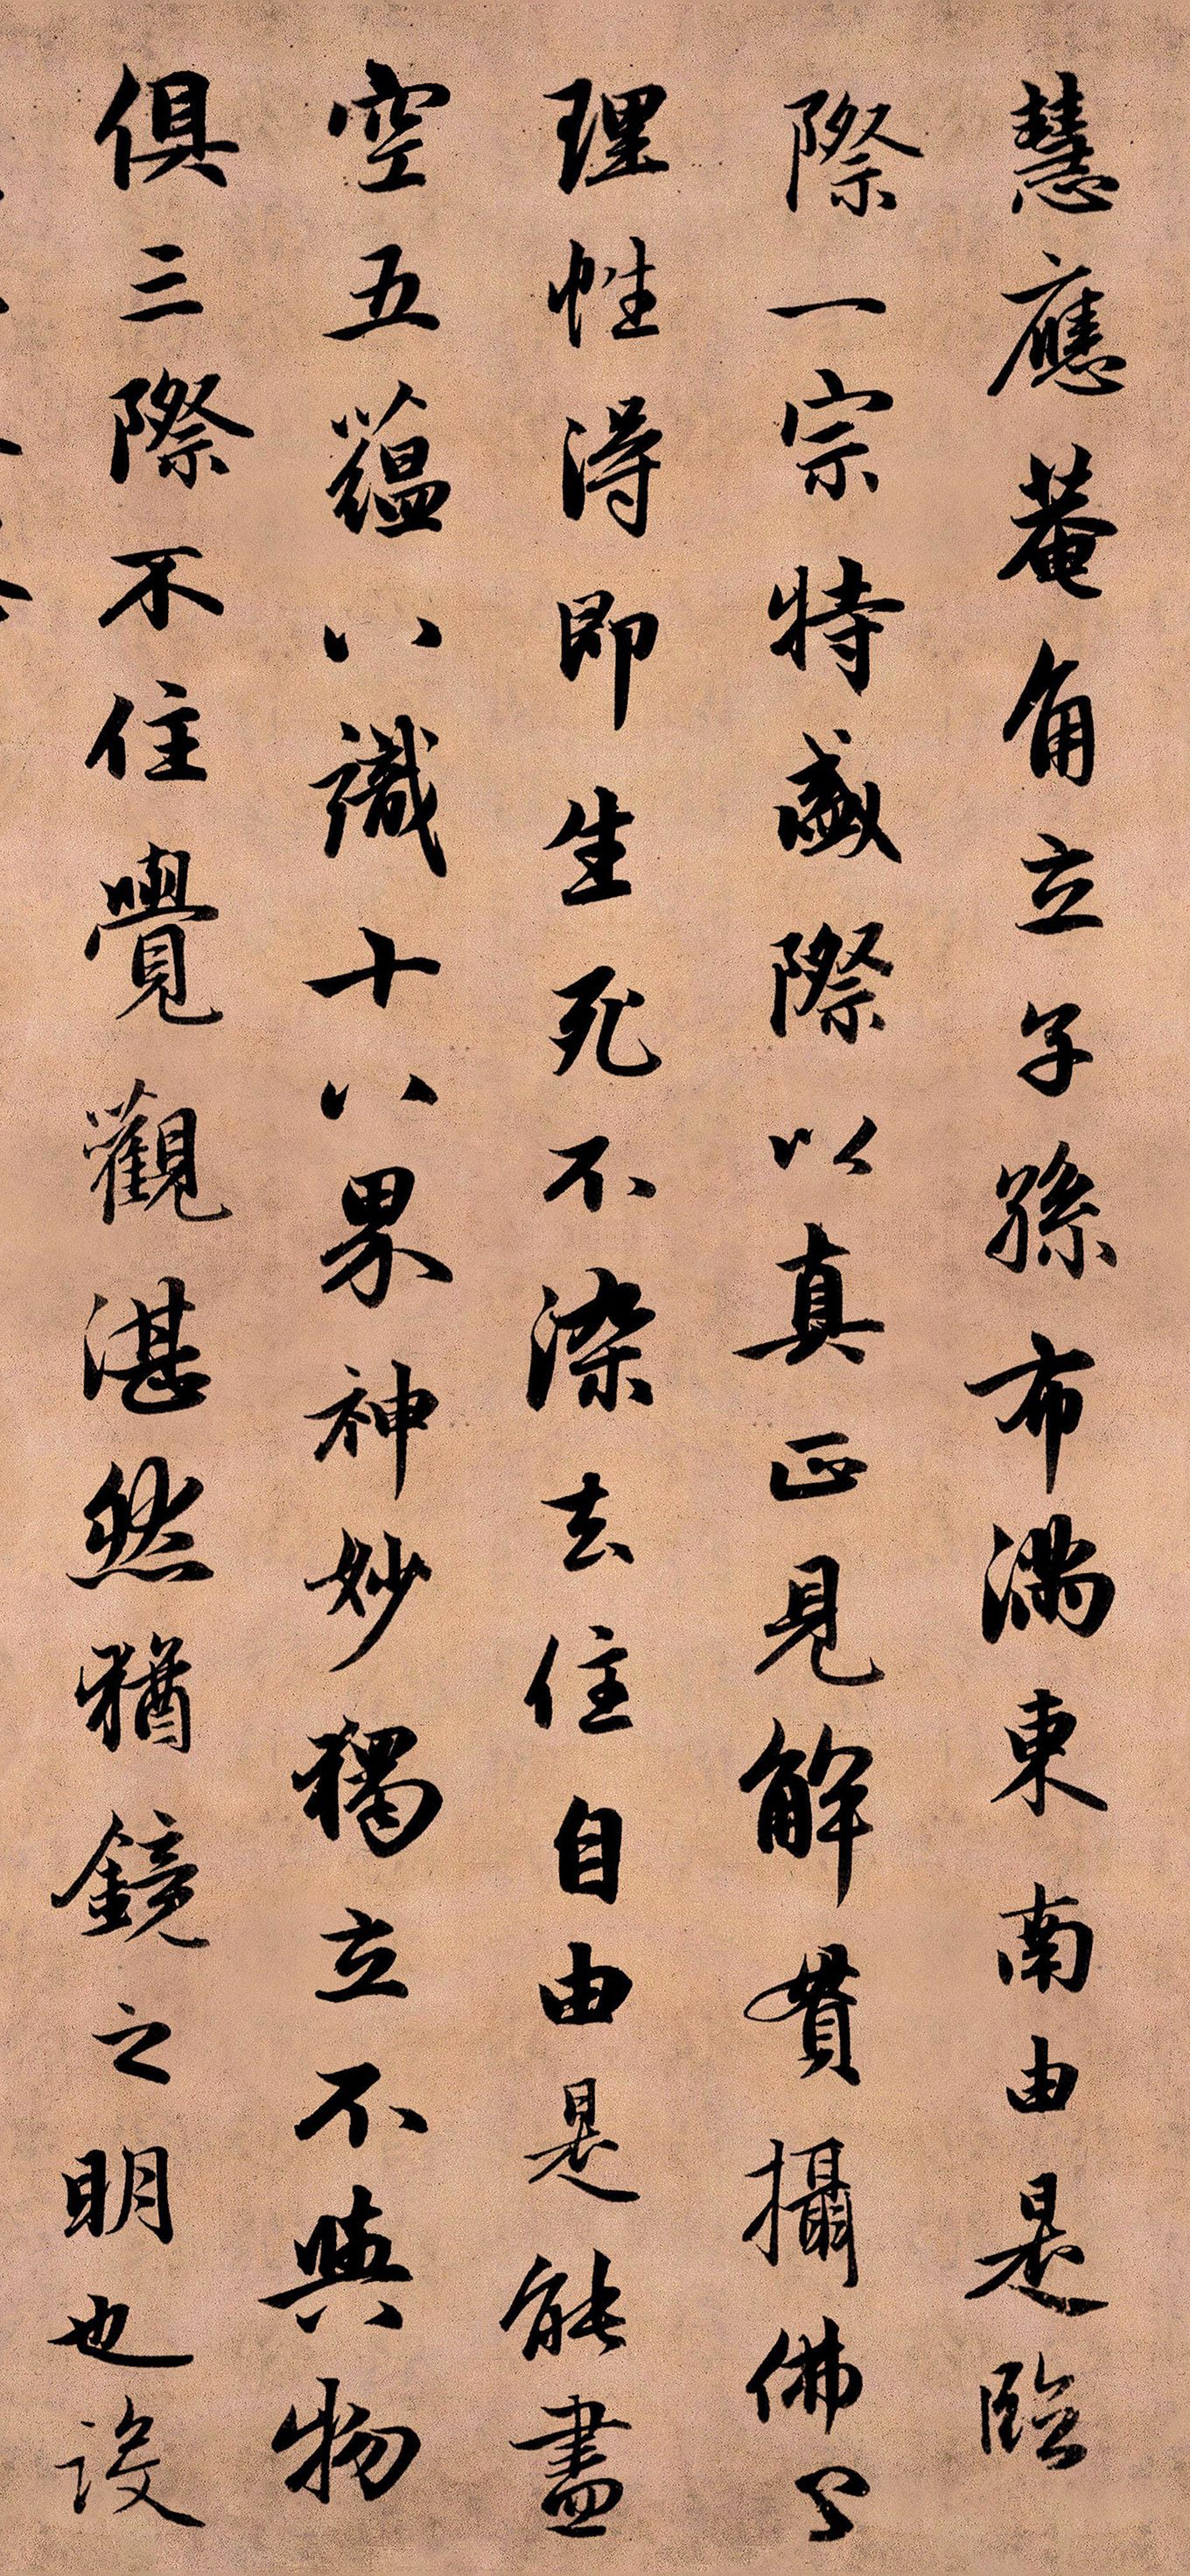 慧應菴角立子孫布滿東南由是臨
際一宗特盛際以真正見解貫攝佛
理性得即生死不染去住自由是能盡
空五蘊八識十八界神妙獨立不與物
俱三際不住覺觀湛然猶鏡之明也設